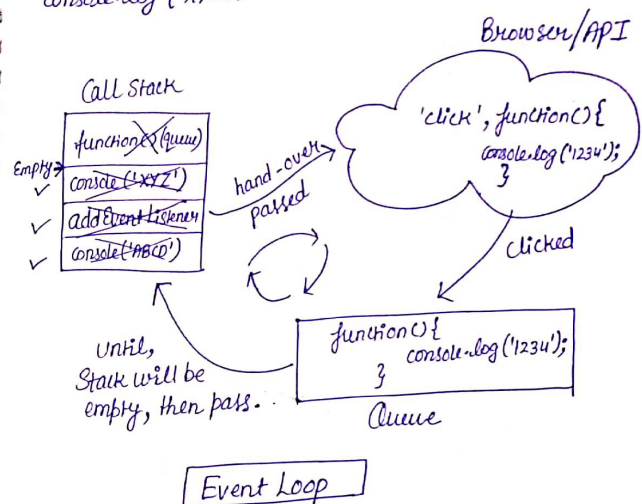 console.log('X
Browser/API
Call Stack
function()(queue)
Empty→
console('XYZ')
addEventListener
console('ABCD')
hand-over
passed
'click', function(){
console.log('1234');
}
clicked
function(){
console.log('1234');
}
Queue
Until,
Stack will be
empty, then pass..
Event Loop